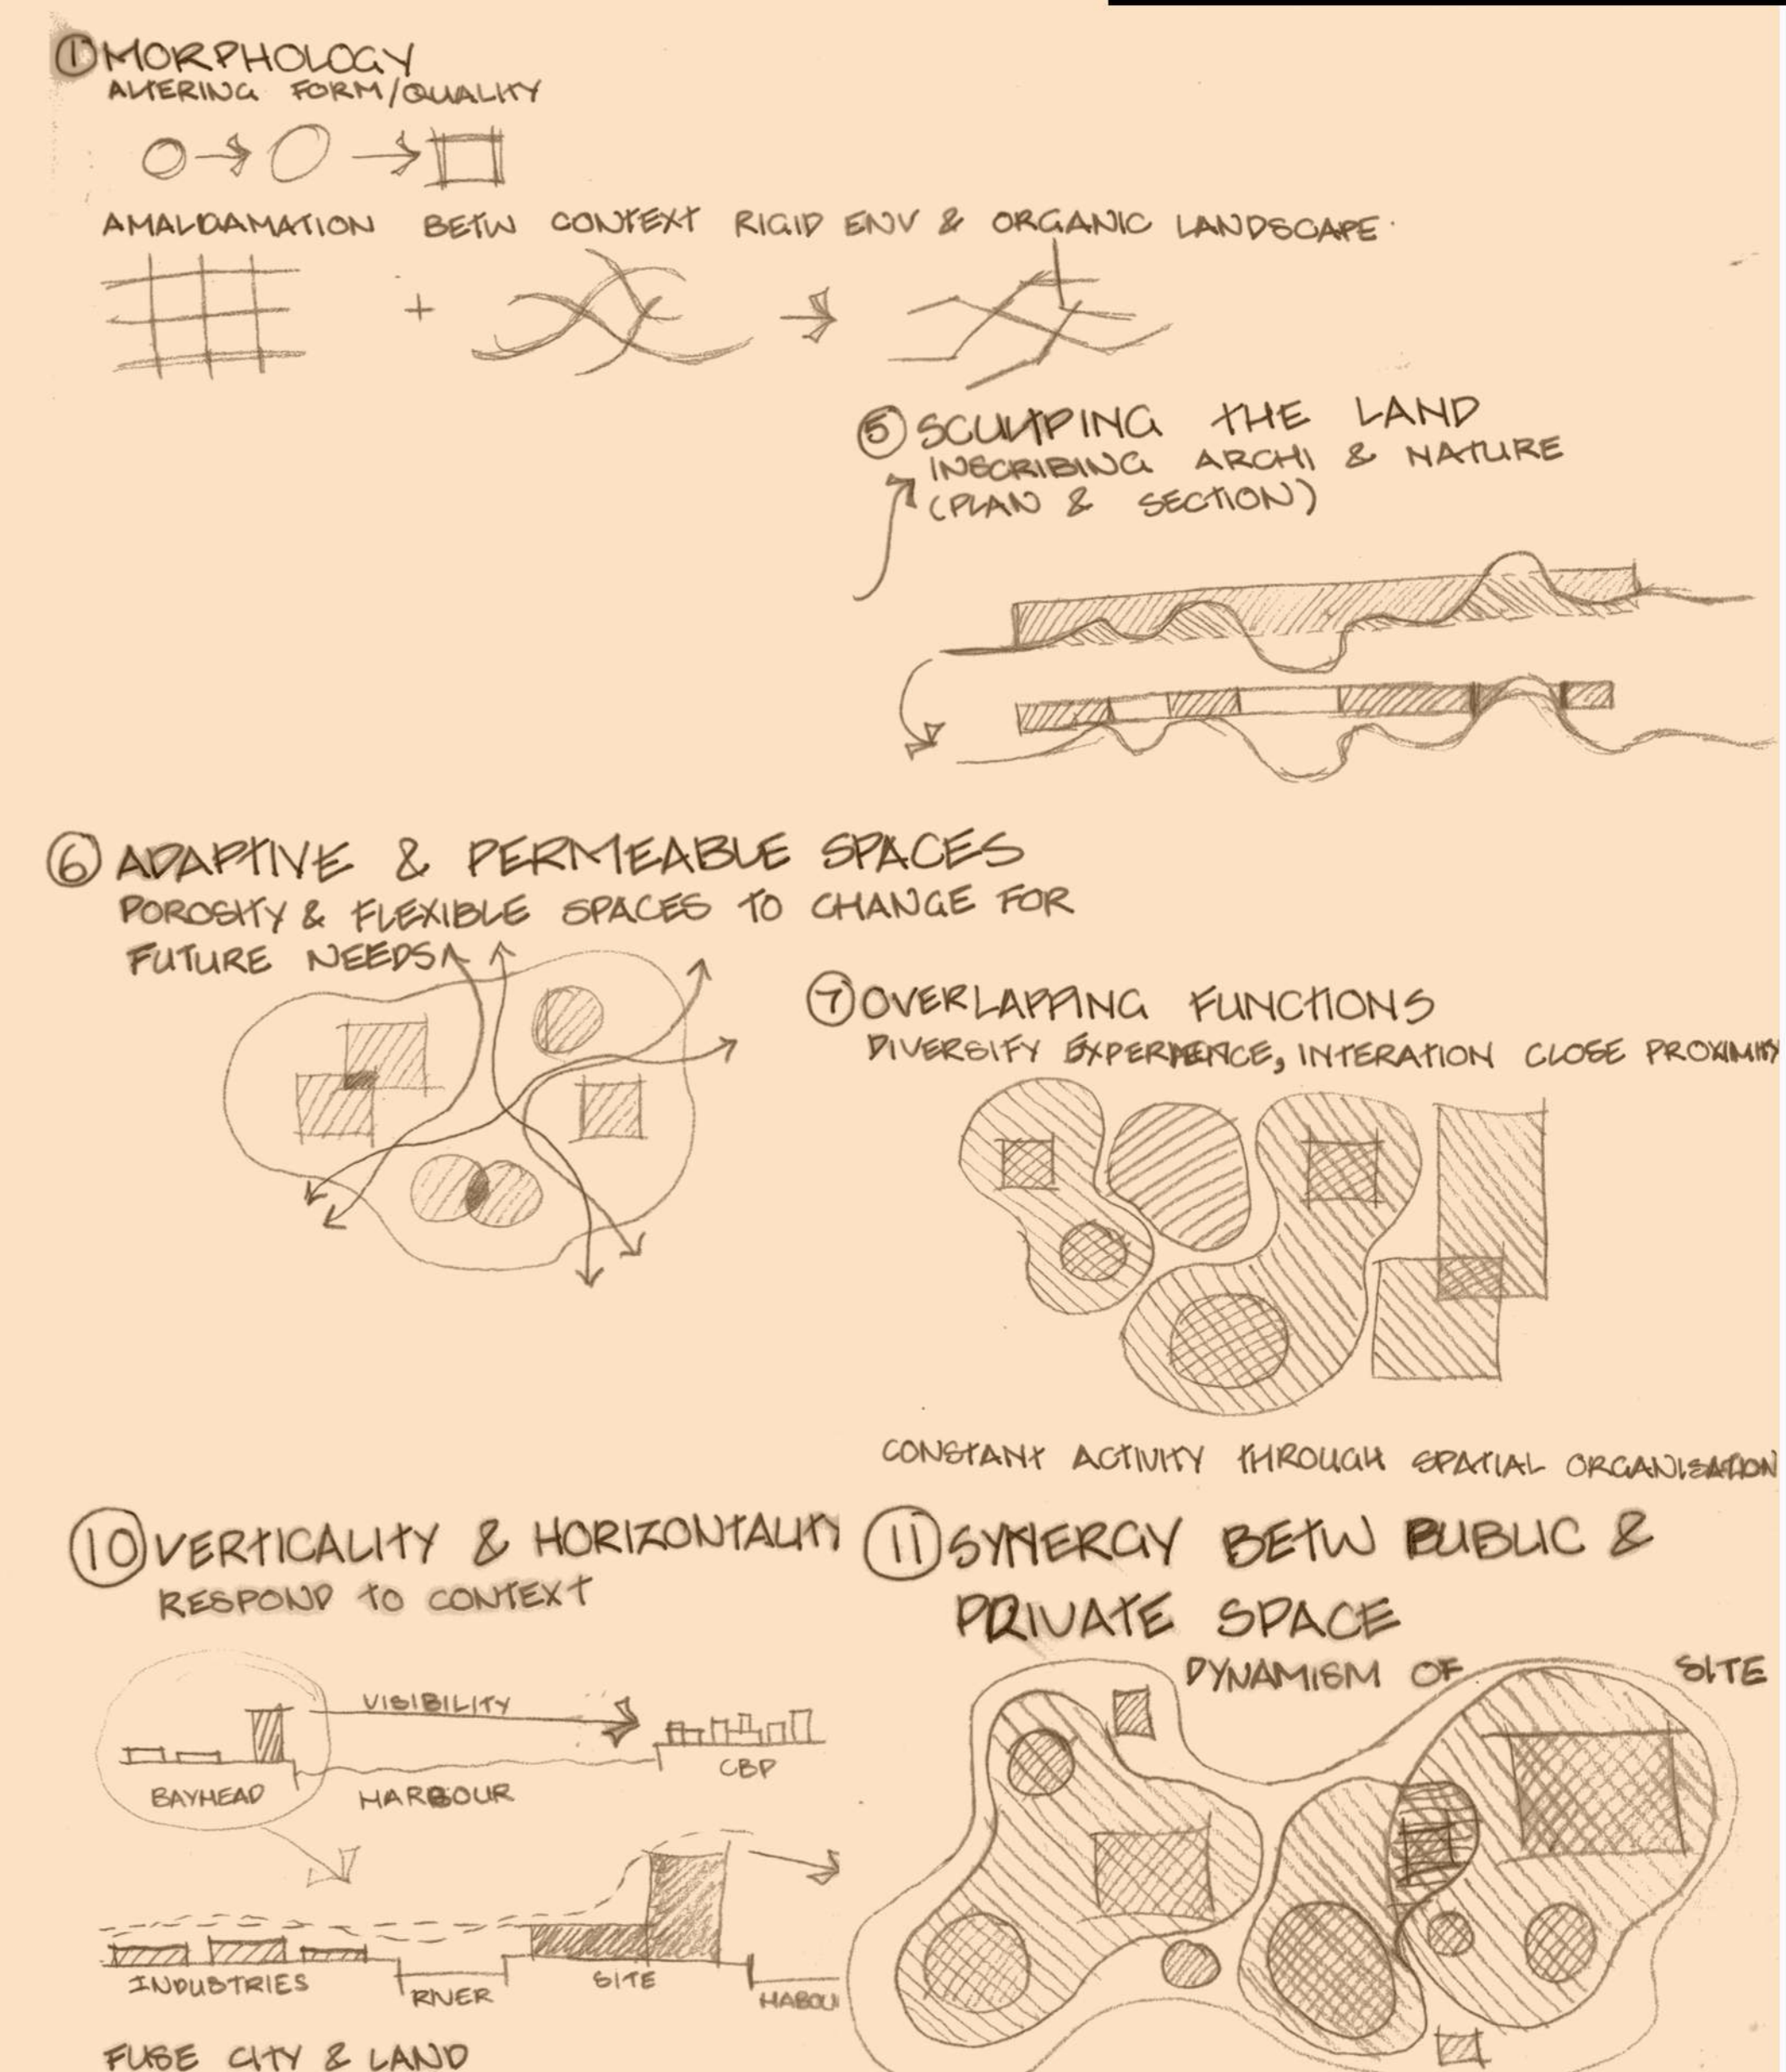 1 MORPHOLOGY
ALTERING FORM/QUALITY
AMALGAMATION BETW CONTEXT RIGID ENV & ORGANIC LANDSCAPE
+
5 SCULPTING THE LAND
INSCRIBING ARCHI & NATURE
(PLAN & SECTION)
6 ADAPTIVE & PERMEABLE SPACES
POROSITY & FLEXIBLE SPACES TO CHANGE FOR
FUTURE NEEDS
7 OVERLAPPING FUNCTIONS
DIVERSIFY EXPERIENCE, INTERATION CLOSE PROXIMITY
CONSTANT ACTIVITY THROUGH SPATIAL ORGANISATION
10 VERTICALITY & HORIZONTALITY
RESPOND TO CONTEXT
VISIBILITY
BAYHEAD
HARBOUR
CBD
INDUSTRIES
RIVER
SITE
HABOU
FUSE CITY & LAND
11 SYNERGY BETW PUBLIC &
PRIVATE SPACE
DYNAMISM OF SITE